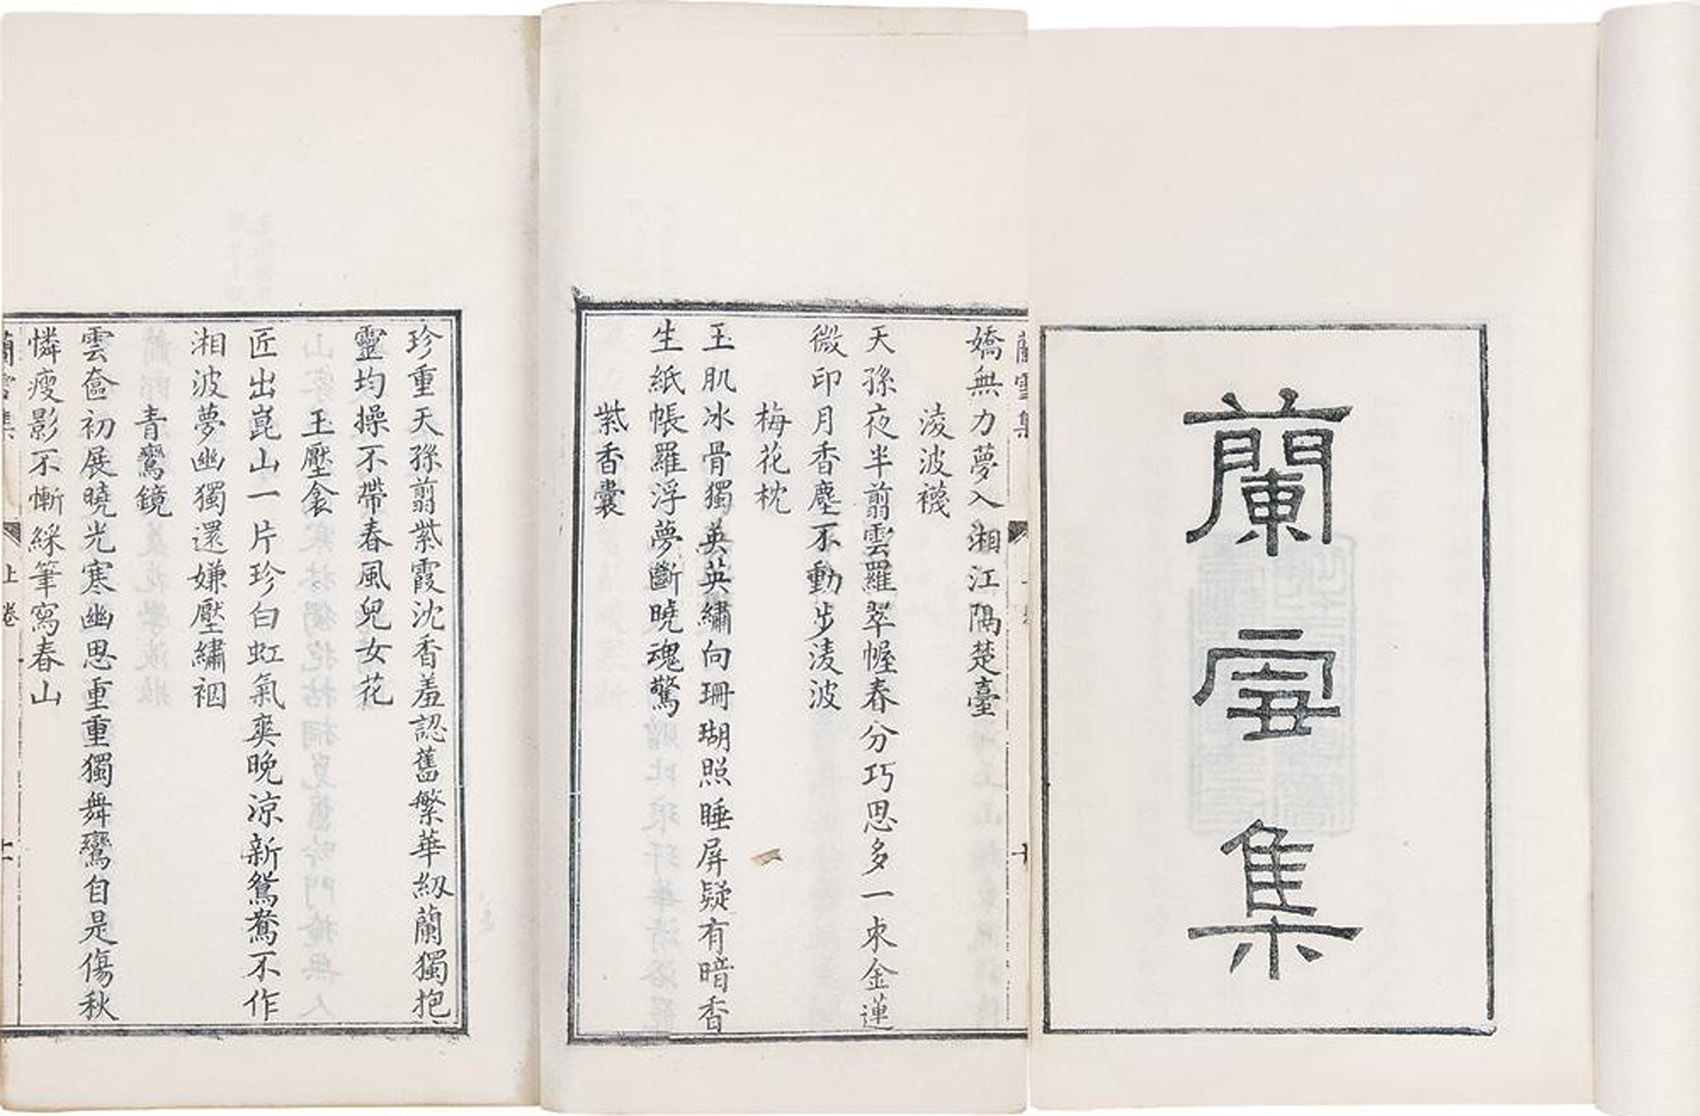 蘭雪集
嬌無力夢入湘江隔楚臺
淩波襪
天孫夜半翦雲羅翠幄春分巧思多一朿金蓮
微印月香塵不動步淩波
梅花枕
玉肌冰骨獨英英繡向珊瑚照睡屏疑有暗香
生紙帳羅浮夢斷曉魂驚
紫香囊
珍重天孫翦紫霞沈香羞認舊繁華紉蘭獨抱
靈均操不帶春風兒女花
玉壓衾
匠出崑山一片珍白虹氣爽晚涼新鴛鴦不作
湘波夢幽獨還嫌壓繡裀
青鸞鏡
雲奩初展曉光寒幽思重重獨舞鸞自是傷秋
憐瘦影不慚綵筆寫春山
蘭雪集
上卷